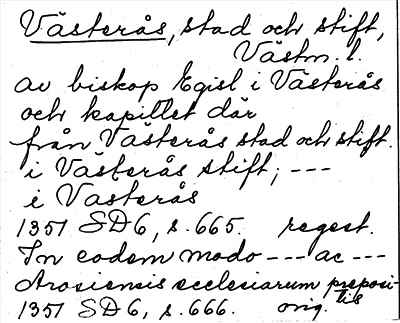 Västerås, stad och stift,
Västm. l.
av biskop Egisl i Västerås
och kapitlet där
från Västerås stad och stift.
i Västerås stift; ---
i Vasterås
1351 SD6, s. 665. regest.
In eodem modo --- ac ---
Arosiensis ecclesiarum preposi-
tis
1351 SD6, s. 666. orig.